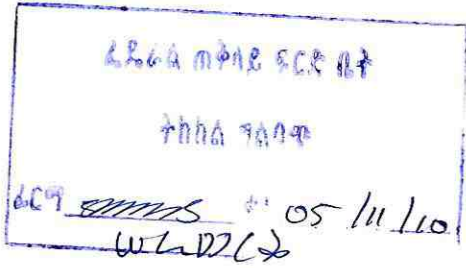 ፌዴራል ጠቅላይ ፍርድ ቤት
ትክክል ግልባጭ
ፊርማ ቀን 05/11/10